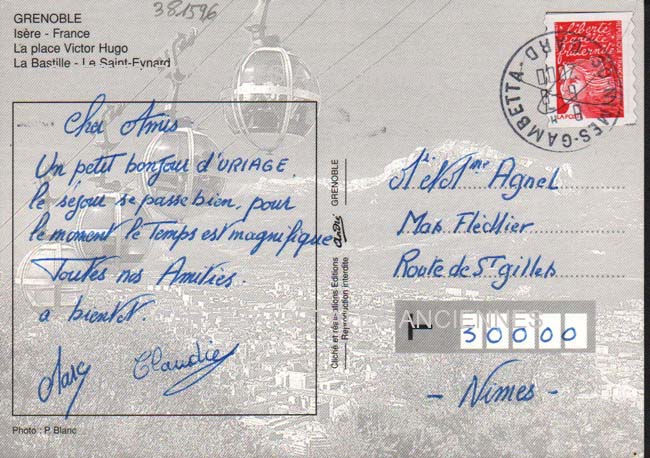 381596
GRENOBLE
Isère - France
La place Victor Hugo
La Bastille - Le Saint-Eynard
Cher Amis
Un petit bonjour d'URIAGE.
le séjour se passe bien, pour
le moment le Temps est magnifique
Toutes nos Amitiés.
a bientot.
Marc Claudie
Photo : P. Blanc
GRENOBLE
André
Cliché et réalisations Editions
Reproduction interdite
liberté
égalité
fraternité
LA POSTE
NIMES-GAMBETTA
GARD
Mr et Mme Agnel
Mas Fléchier
Route de St gilles
ANCIENNES
30000
- Nimes -